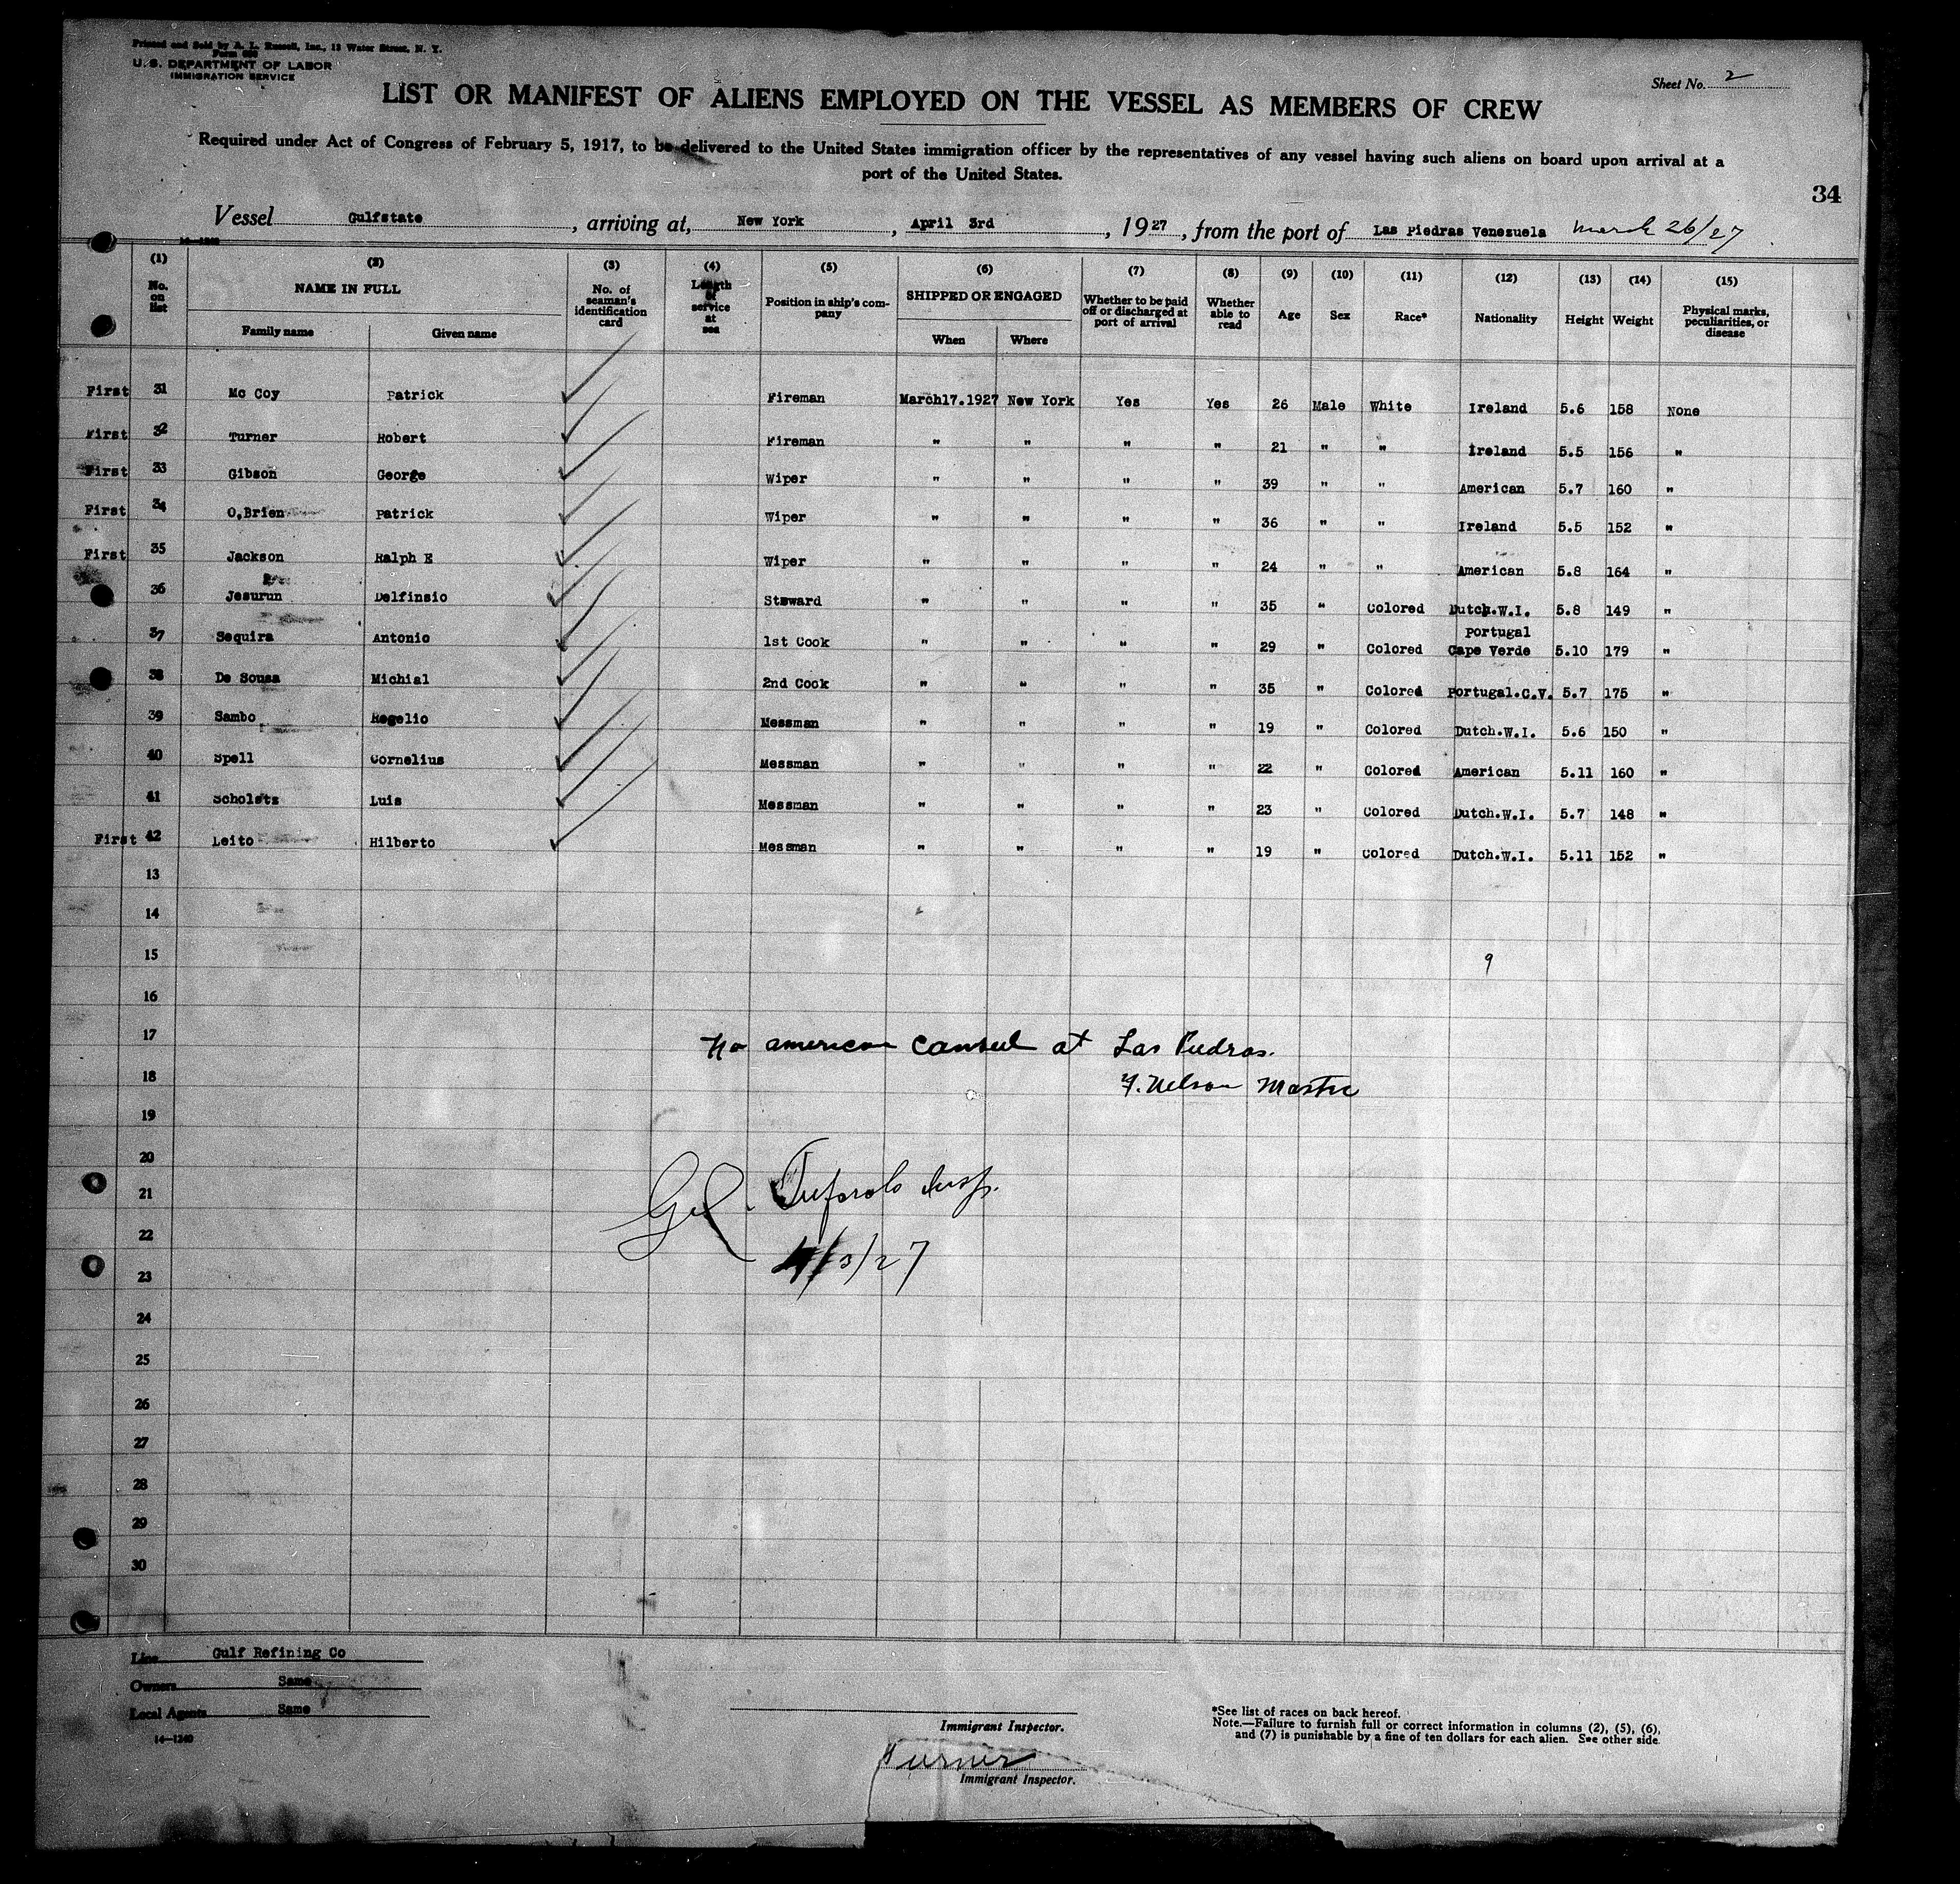 Printed and Sold by A. L. Russell, Inc., 13 Water Street, N. Y.
Form 680
U. S. DEPARTMENT OF LABOR
IMMIGRATION SERVICE
Sheet No. 2
LIST OR MANIFEST OF ALIENS EMPLOYED ON THE VESSEL AS MEMBERS OF CREW
Required under Act of Congress of February 5, 1917, to be delivered to the United States immigration officer by the representatives of any vessel having such aliens on board upon arrival at a
port of the United States.
34
Vessel Gulfstate, arriving at, New York, April 3rd, 1927, from the port of Las Piedras Venezuela March 26/27
(1) (2) (3) (4) (5) (6) (7) (8) (9) (10) (11) (12) (13) (14) (15)
No. on list NAME IN FULL Family name Given name No. of seaman's identification card Length of service at sea Position in ship's company SHIPPED OR ENGAGED When Where Whether to be paid off or discharged at port of arrival Whether able to read Age Sex Race* Nationality Height Weight Physical marks, peculiarities, or disease
First 31 Mc Coy Patrick Fireman March17.1927 New York Yes Yes 26 Male White Ireland 5.6 158 None
First 32 Turner Robert Fireman " " " " 21 " " Ireland 5.5 156 "
First 33 Gibson George Wiper " " " " 39 " " American 5.7 160 "
First 34 O,Brien Patrick Wiper " " " " 36 " " Ireland 5.5 152 "
First 35 Jackson Ralph E Wiper " " " " 24 " " American 5.8 164 "
36 Jesurun Delfinsio Steward " " " " 35 " Colored Dutch.W.I. 5.8 149 "
37 Sequira Antonio 1st Cook " " " " 29 " Colored Portugal Cape Verde 5.10 179 "
38 De Sousa Michial 2nd Cook " " " " 35 " Colored Portugal.C.V. 5.7 175 "
39 Sambo Rogelio Messman " " " " 19 " Colored Dutch.W.I. 5.6 150 "
40 Spell Cornelius Messman " " " " 22 " Colored American 5.11 160 "
41 Scholsts Luis Messman " " " " 23 " Colored Dutch.W.I. 5.7 148 "
First 42 Leito Hilberto Messman " " " " 19 " Colored Dutch.W.I. 5.11 152 "
13
14
15 9
16
17 No american consul at Las Piedras.
18 F. Nelson Master
19
20
21 Insp.
22
4/3/27
23
24
25
26
27
28
29
30
Line Gulf Refining Co
Owners Same
Local Agents Same
14—1240
Immigrant Inspector.
Immigrant Inspector.
*See list of races on back hereof.
Note.—Failure to furnish full or correct information in columns (2), (5), (6),
and (7) is punishable by a fine of ten dollars for each alien. See other side.